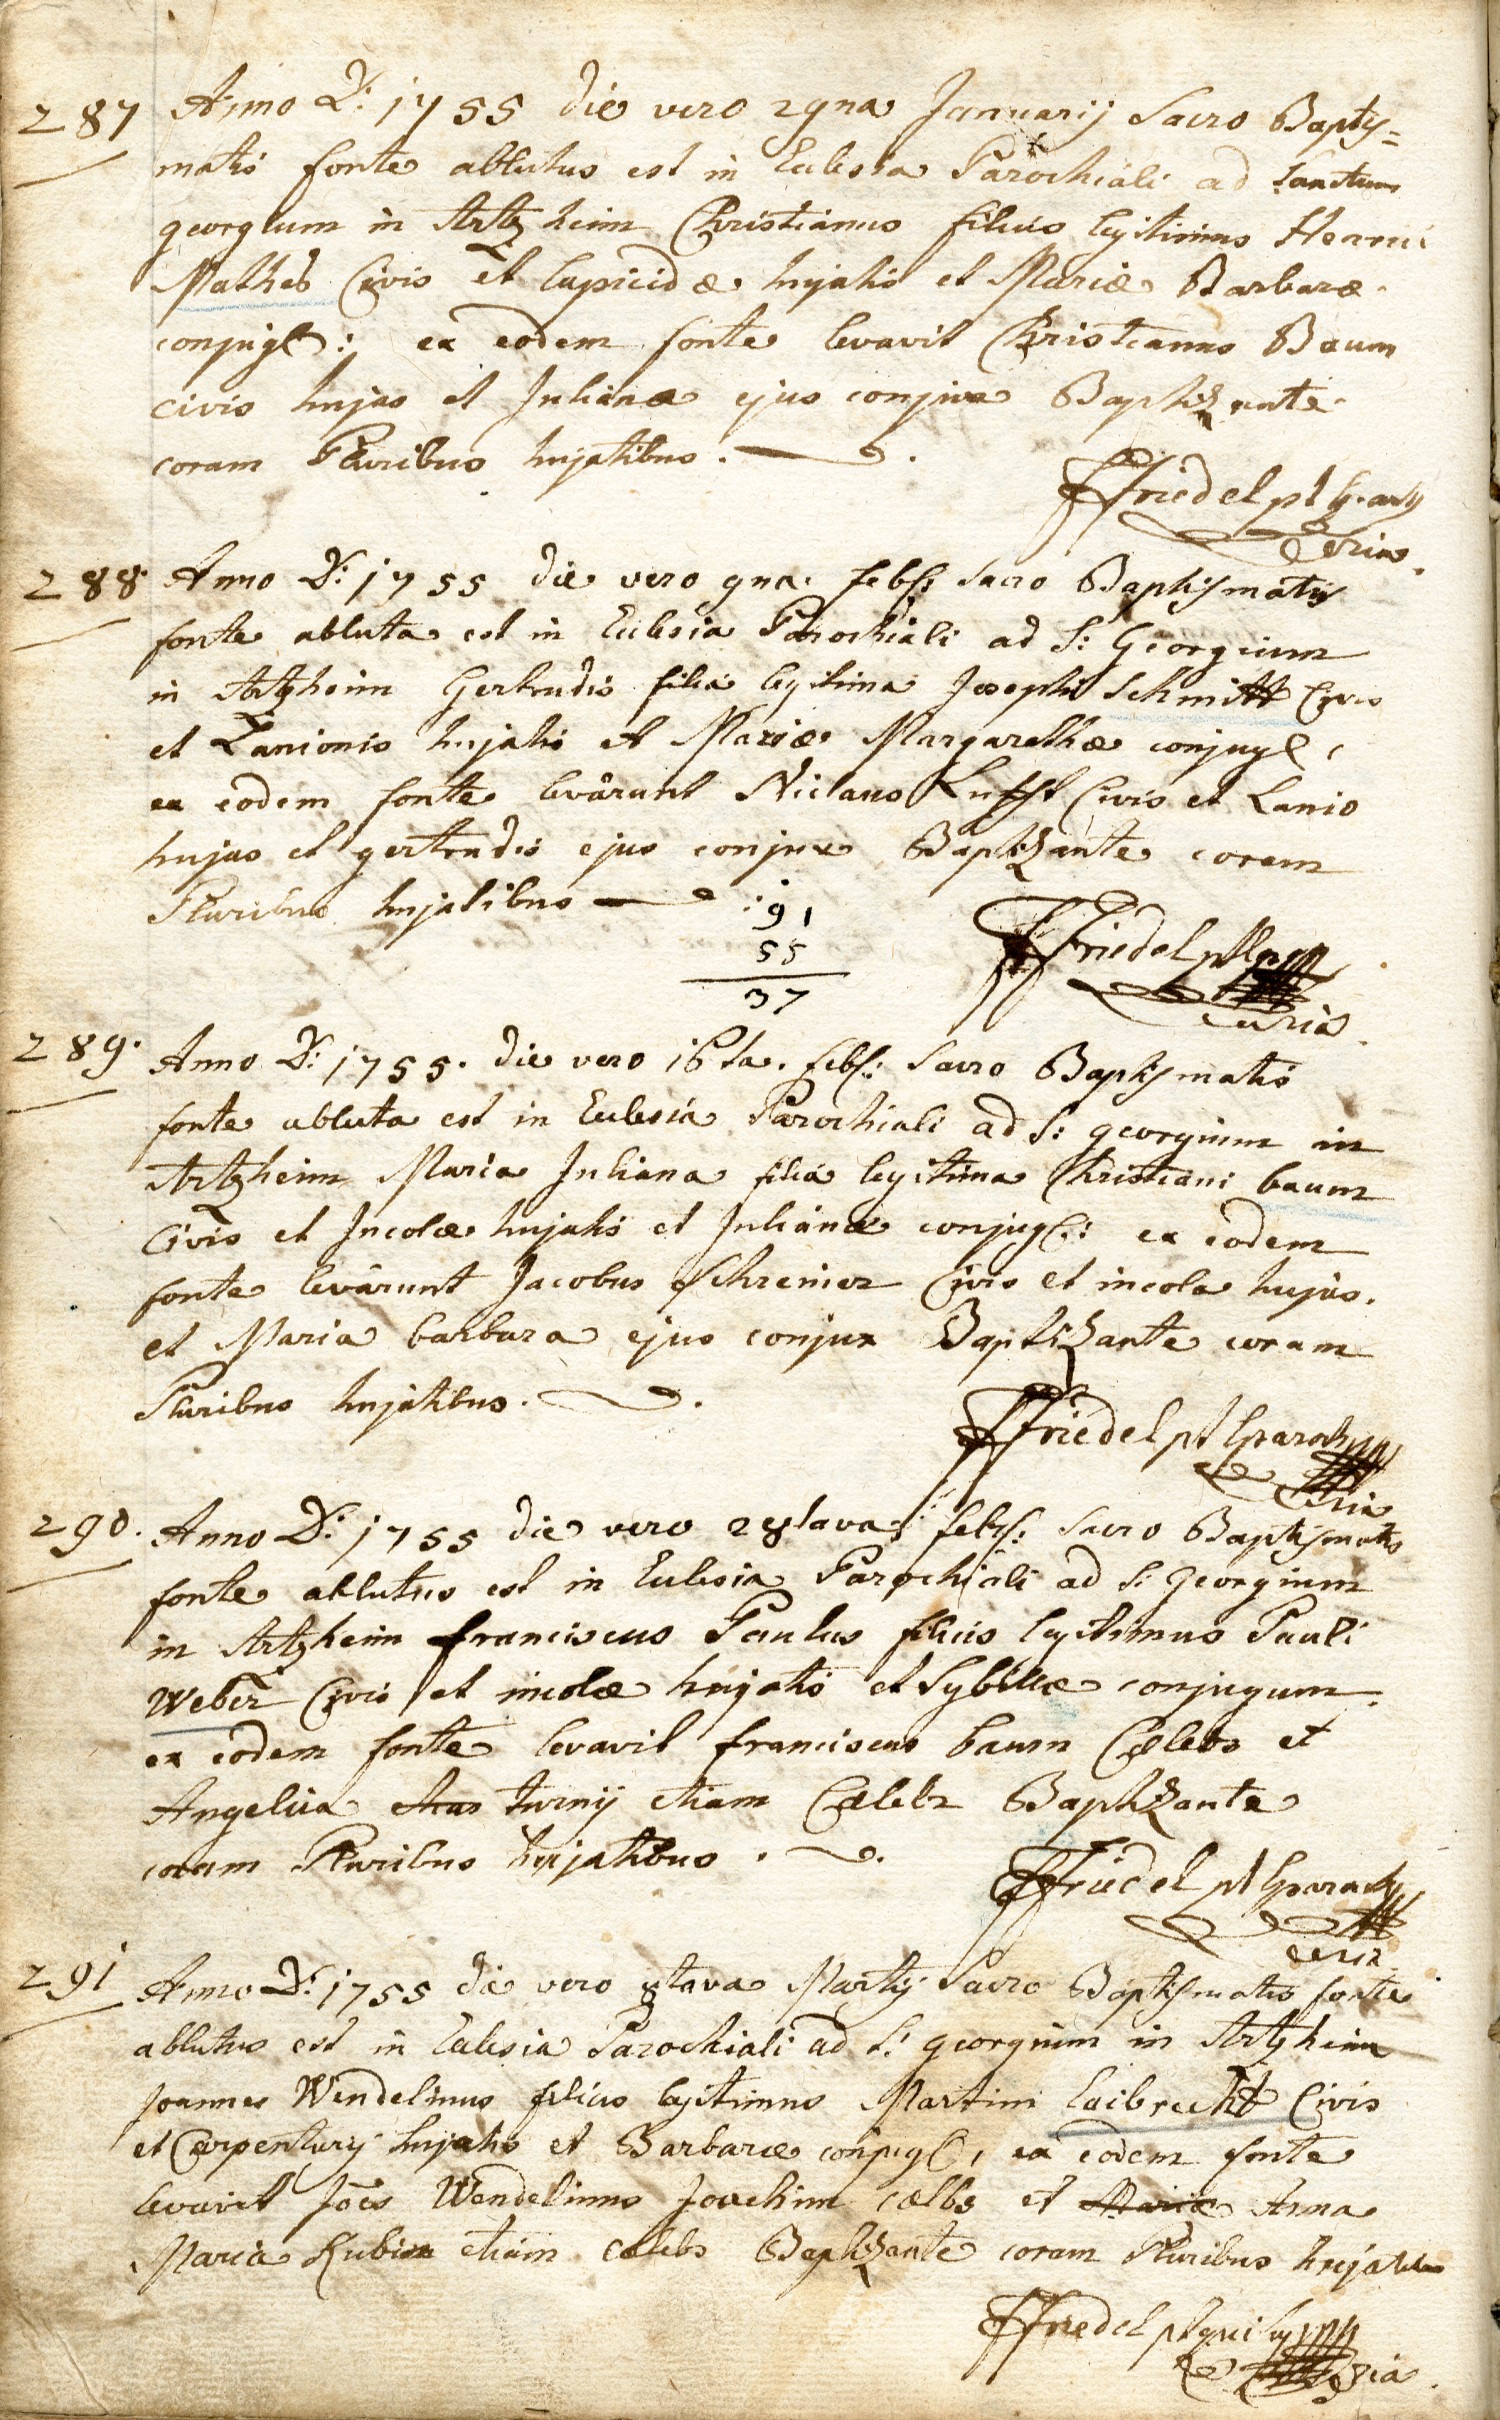 287 Anno D: 1755 die vero 29na Januarij Sacro Baptis=
matis fonte ablutus est in Eclesia Parochiali ad Sanctum
georgium in Artzheim Christianus filius legitimus Henrici
Mathes Civis et lapicidæ hujatis et Mariæ Barbaræ
conjug: ex eodem fonte levavit Christianus Baum
civis hujas et Julianæ ejus conjux Baptizante
coram Pluribus hujatibus.
Friedel pt
288 Anno D: 1755 die vero 9na. feb: Sacro Baptismatis
fonte abluta est in Eclesia Parochiali ad S: Georgium
in Artzheim Gertrudis filia legitima Josephi Schmitt Civis
et Lanionis hujatis et Mariæ Margarethæ conjug:
ex eodem fonte levârunt Niclaus Civis et Lanio
hujas et gertrudis ejus conjux Baptizante coram
Pluribus hujatibus
91
55
37
Friedel pt
curia
289. Anno D: 1755. die vero 16ta. feb: Sacro Baptismatis
fonte abluta est in Eclesia Parochiali ad S: georgium in
Artzheim Maria Juliana filia legitima Christiani baum
Civis et Incolæ hujatis et Julianæ conjug: ex eodem
fonte levârunt Jacobus Schreiner Civis et incola hujas.
et Maria barbara ejus conjux Baptizante coram
Pluribus hujatibus.
Friedel pt
290. Anno D: 1755 die vero 28tava feb: Sacro Baptismatis
fonte ablutus est in Eclesia Parochiali ad S: Georgium
in Artzheim franciscus Paulus filius legitimus Pauli
Weber Civis et incolæ hujatis et Sybillæ conjugum.
ex eodem fonte levavit franciscus baum Cælebs et
Angelica etiam Cælebs Baptizante
coram Pluribus hujatibus.
Friedel pt
291 Anno D: 1755 die vero 8tava Martij Sacro Baptismatis fonte
ablutus est in Eclesia Parochiali ad S: georgium in Artzheim
Joannes Wendelinus filius legitimus Martini laibrecht Civis
et Carpentarij hujatis et Barbaræ conjug: ex eodem fonte
levavit Joës Wendelinus Joachim cælbs et Maria Anna
Maria etiam cælebs Baptizante coram Pluribus hujatibus
Friedel pt